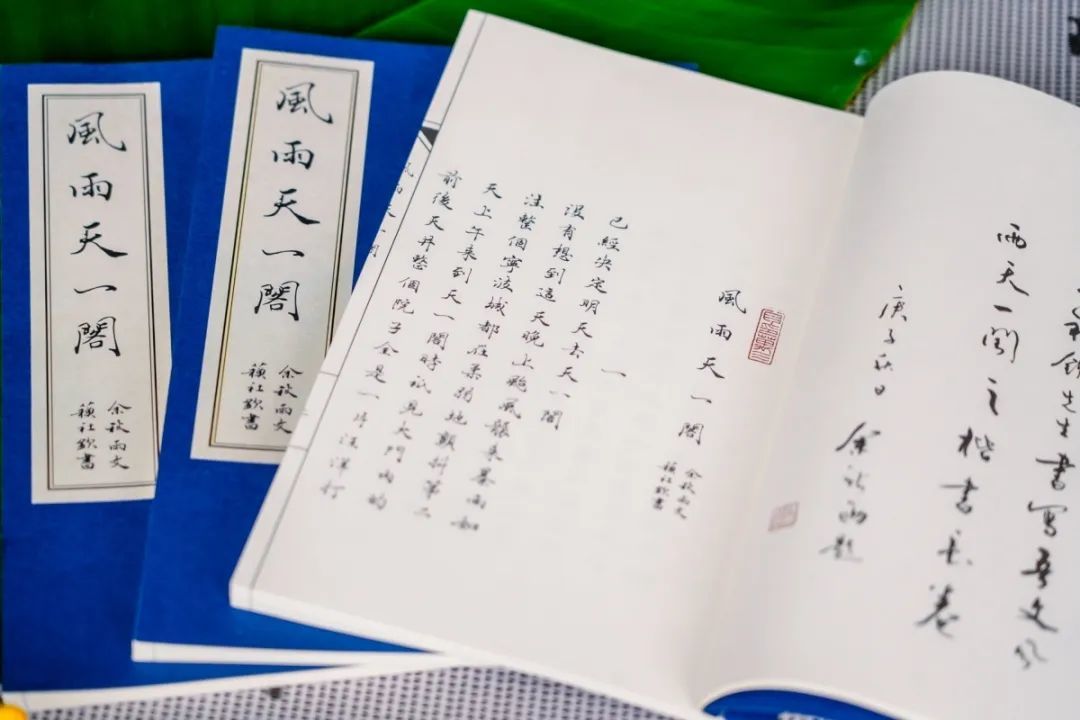 風雨天一閣
余秋雨文
社欽書
風雨天一閣
余秋雨文
社欽書
先生書寫吾文風
雨天一閣之楷書長卷
庚子秋日
余秋雨題
風雨天一閣
余秋雨文
社欽書
一
已經決定明天去天一閣
沒有想到這天晚上颱風襲來暴雨如
注整個寧波城都在柔弱地顫抖第二
天上午來到天一閣時祇見大門內的
前後天井整個院子全是一片汪洋打
風雨天一閣